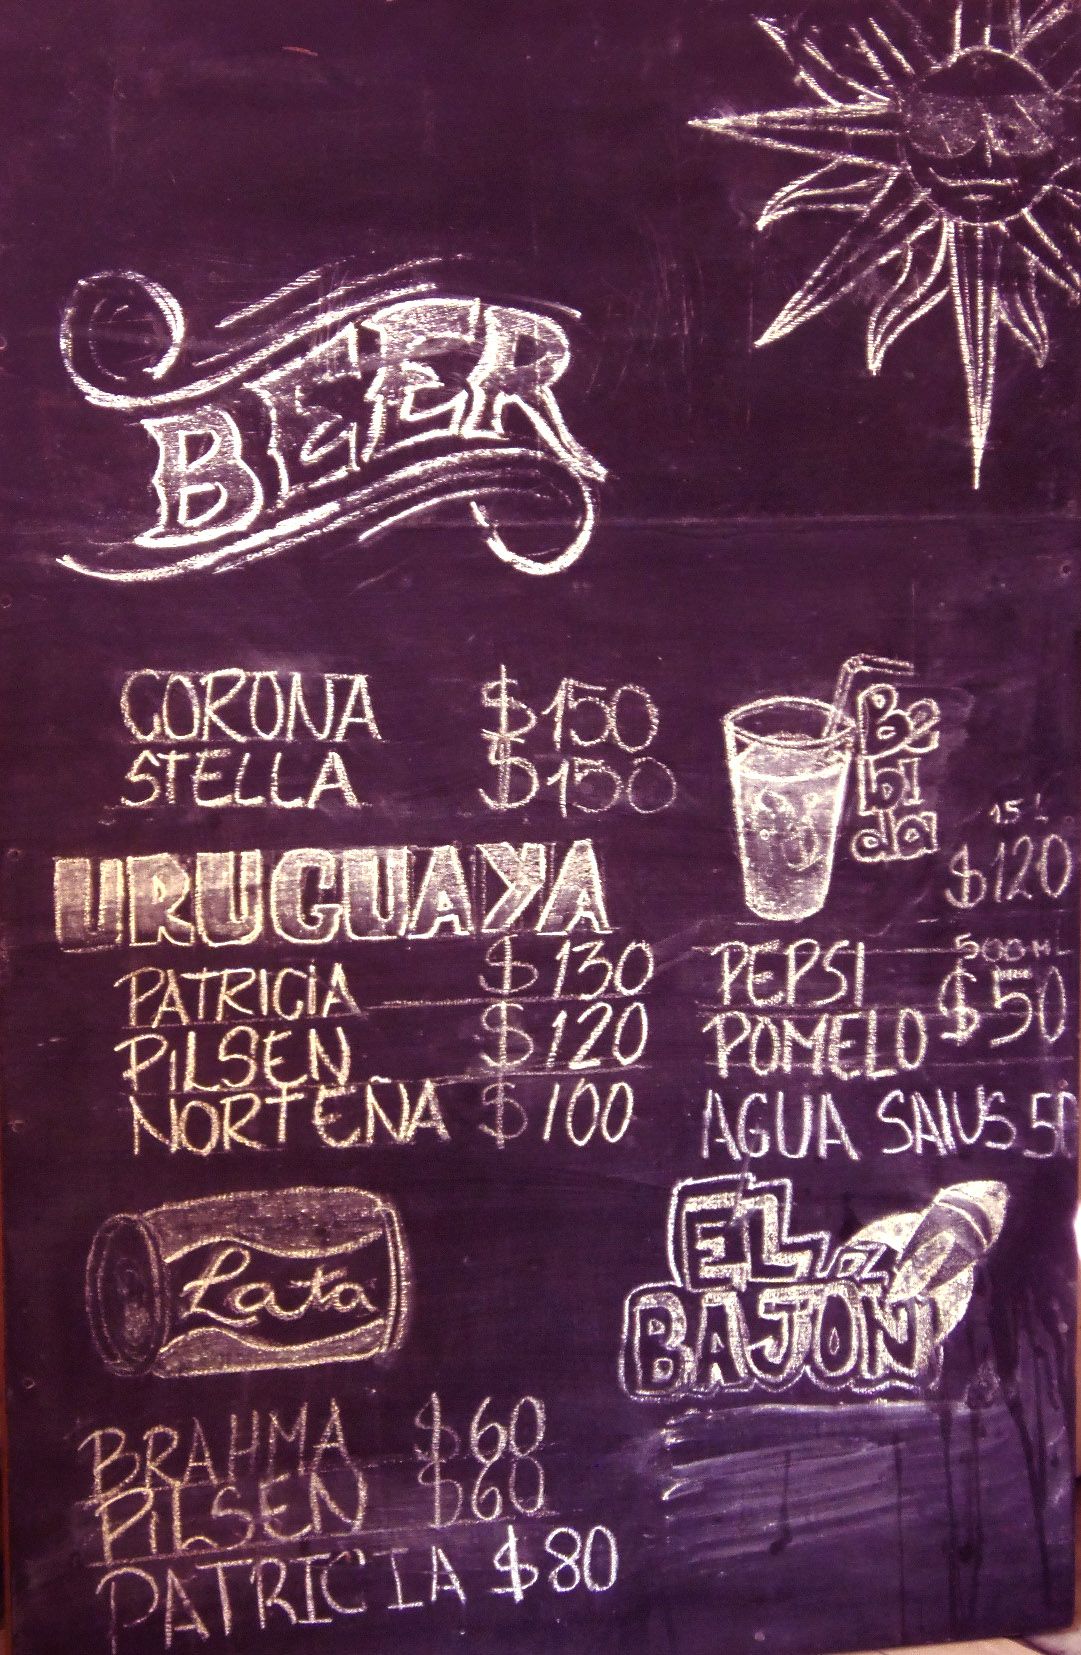 BEER
CORONA $150
STELLA $150
URUGUAYA
PATRICIA $130
PILSEN $120
NORTEÑA $100
Lata
BRAHMA $60
PILSEN $60
PATRICIA $80
Be
bi
da
$120
PEPSI 500ML
POMELO $50
AGUA SALUS 50
EL
BAJON